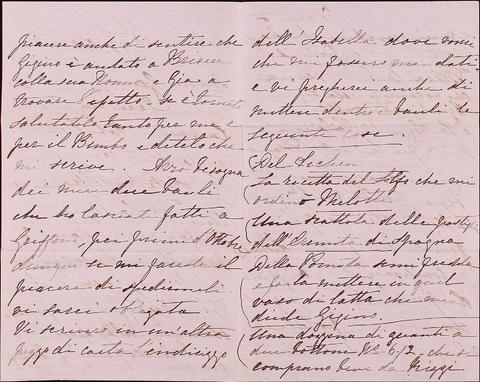 piacere anche di sentire che
Gigino è andato a
colla sua Nonna e Gia a
trovare l'epetto, se è tornato
salutatelo tanto per me e
per il Bimbo e ditelo che
mi scrive. Avrò bisogna
dei miei due bauli
che ho lasciati fatti a
pei primi d'Ottobre
dunque se mi fareste il
piacere di spedirmeli
vi sarei obligata.
Vi scriverò in un'altro
pezzo di carta l'indirizzo
dell'Isabella dove
che mi fossero mandati
e vi pregherei anche di
mettere dentro i bauli le
seguente cose.
Del Lichen
La ricetta del che mi
ordinò
Una scattola delle
dell'Eremita di Spagna
Della Pomata semifredda
e farla mettere in quel
vaso di latta che mi
diede Gigino.
Una dozzina di guanti a
due bottoni No 6/2, che si
comprano bene da